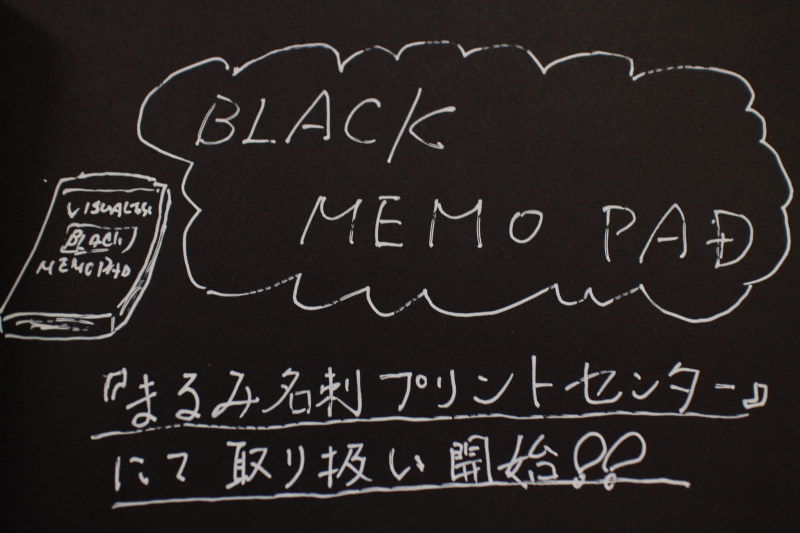 BLACK
MEMO PAD
BLACK
MEMO PAD
『まるみ名刺プリントセンター』
にて取り扱い開始!!